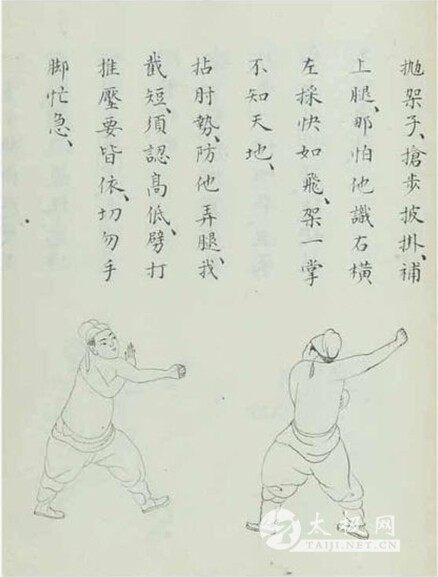 抛架子、搶步披掛、補
上腿、那怕他識右横
左採快如飛、架一掌
不知天地、
拈肘勢、防他弄腿、我
截短、須認高低、劈打
推壓要皆依、切勿手
脚忙急、
太极网
TAIJI.NET.CN